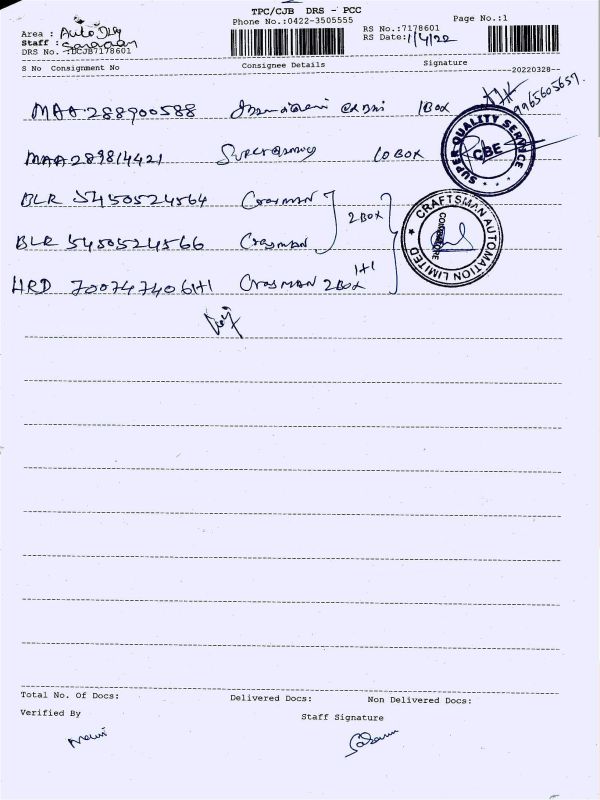 TPC/CJB DRS - PCC
Phone No.:0422-3505555
Page No.:1
Area : Auto Dly
RS No.:7178601
Staff : Saravanan
RS Date: 1/4/22
DRS No. :DCJB7178601
S No Consignment No Consignee Details Signature
--20220328--
MAA 288900588 1 Box
9965605659
MAA 289814421 10 BOX
SUPER QUALITY SERVICE
CBE
BLR 5450524564
2 BOX
CRAFTSMAN AUTOMATION LIMITED
COIMBATORE
BLR 5450524566
HRD 700747406 1+1 2 Box 1+1
Total No. Of Docs: Delivered Docs: Non Delivered Docs:
Verified By Staff Signature